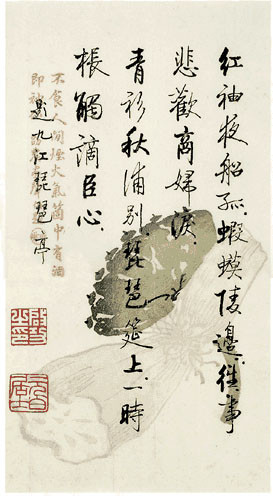 红袖夜船孤.蝦蟆陵邊.往事
悲歡商婦淚.
青衫秋浦別.琵琶筵上.一時
棖觸謫臣心.
題九江琵琶亭
不食人間煙火氣箇中有酒
即神